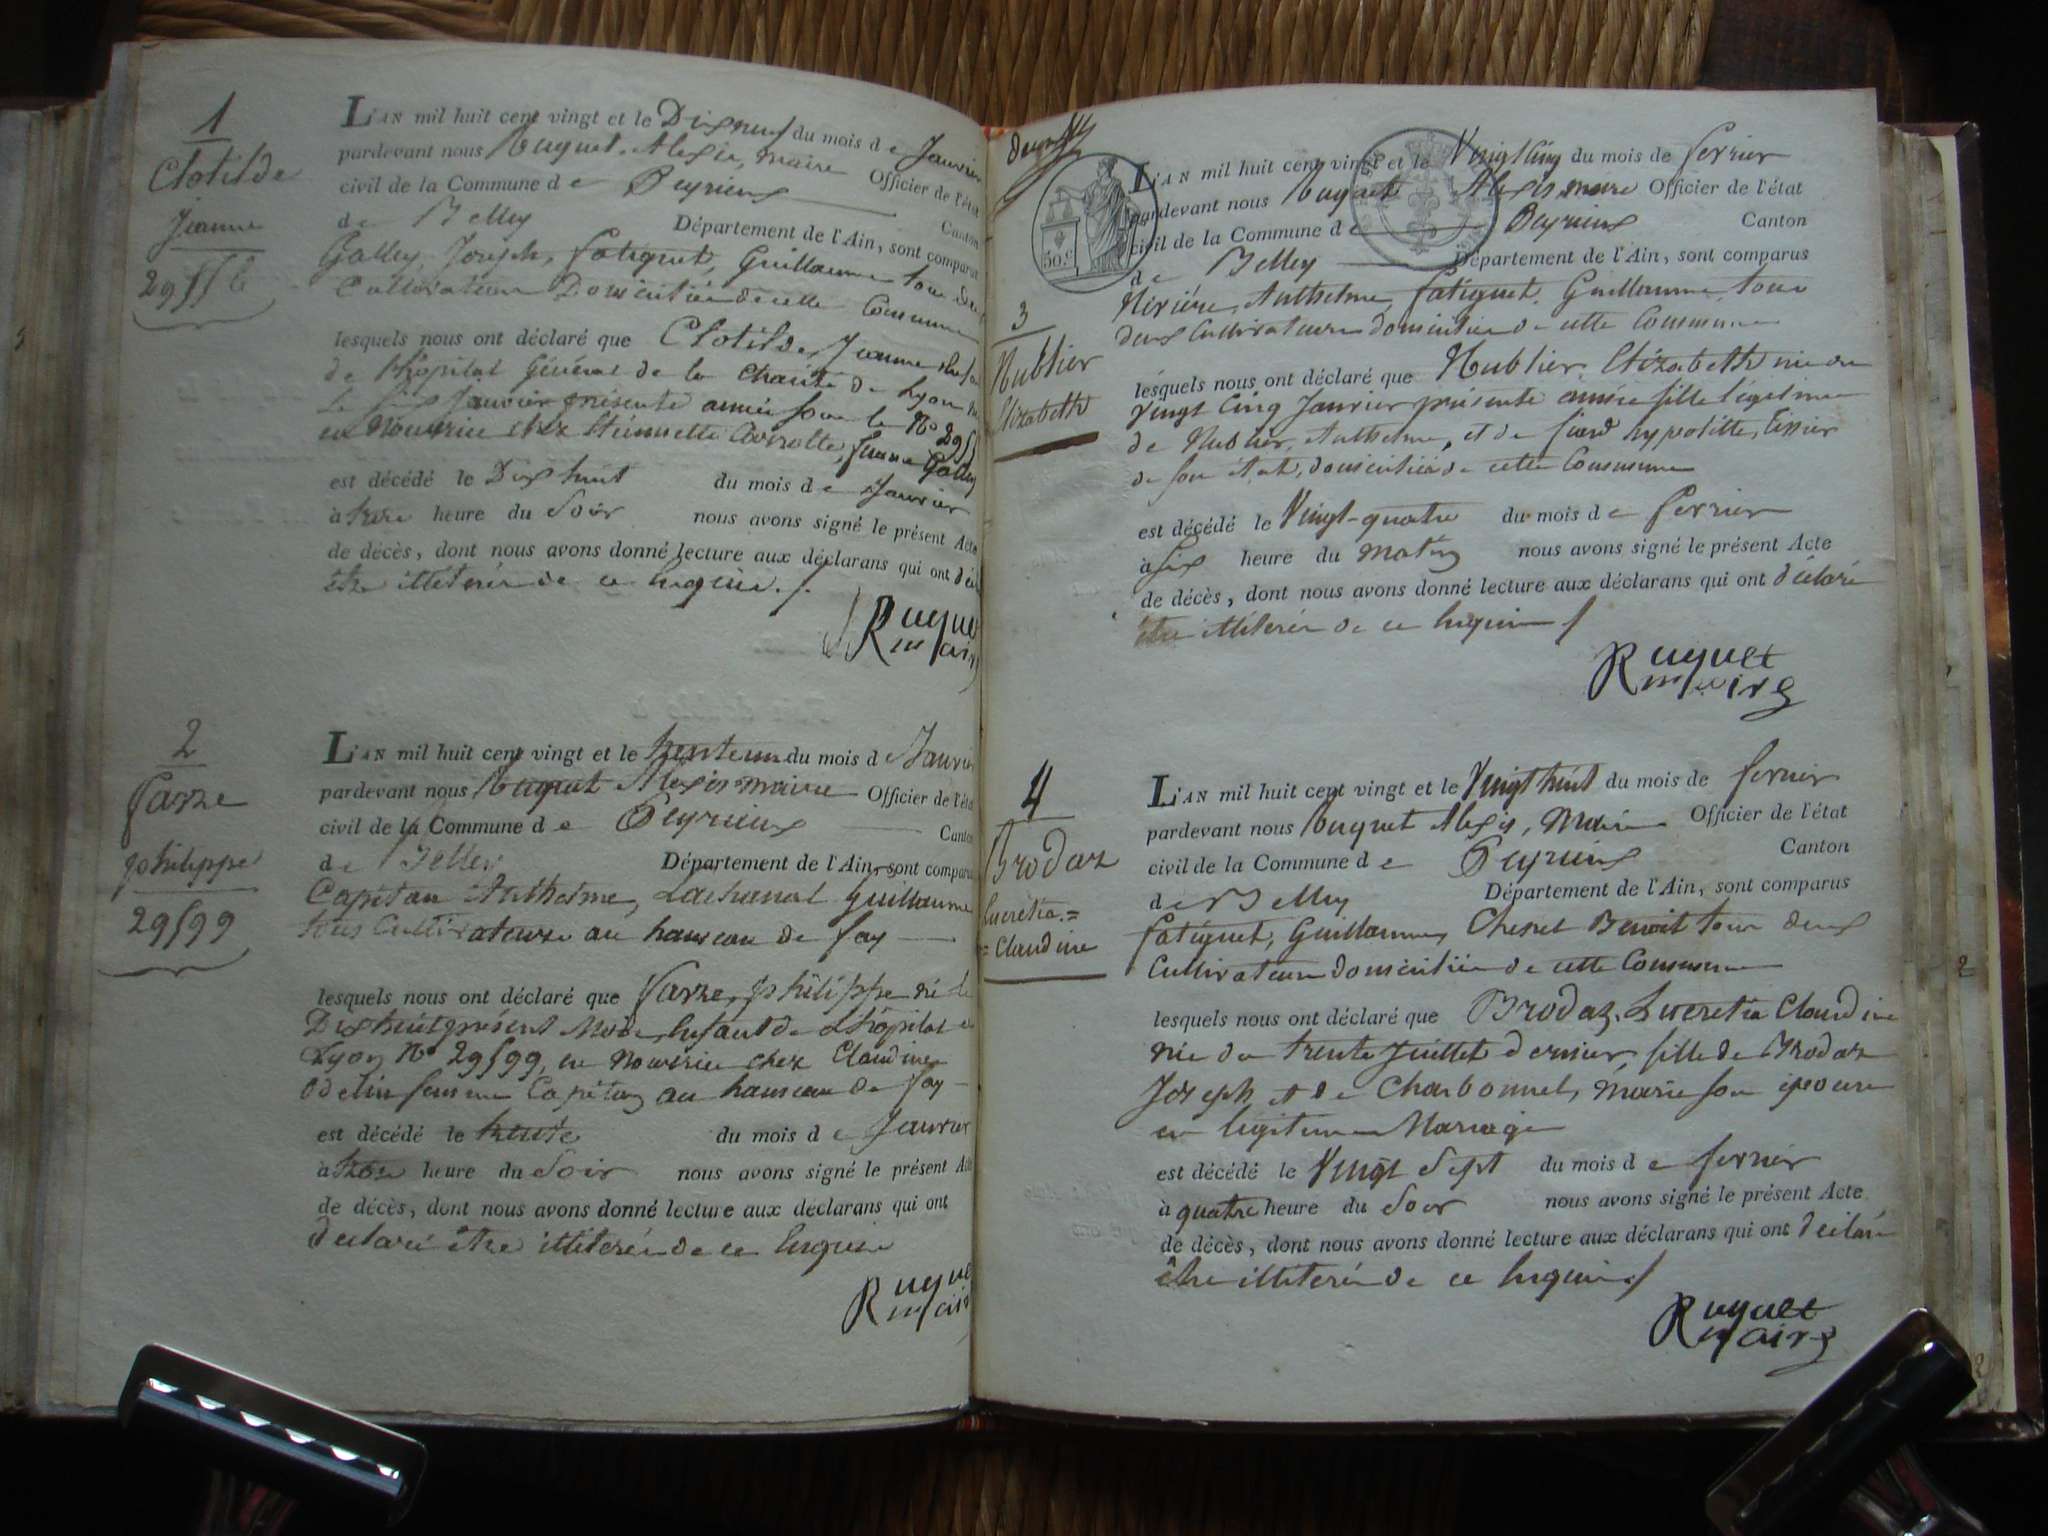 1
Clotilde
Jeanne
L'AN mil huit cent vingt et le Dix neuf du mois de Janvier
pardevant nous Ruquet Alexis, maire Officier de l'état
civil de la Commune de Peyrieux Canton
de Belley Département de l'Ain, sont comparus
Galley Joseph, fatiguet, Guillaume tous deux
Cultivateurs Domiciliés de cette Commune
lesquels nous ont déclaré que Clotilde, Jeanne
de l'hôpital Général de la Charité de Lyon
le Janvier présente année sous le No
en Nourrice chez femme Galley
est décédé le Dix huit du mois de Janvier
à heure du Soir nous avons signé le présent Acte
de décès, dont nous avons donné lecture aux déclarans qui ont
être illiterés de ce requis
Ruquet
maire
2
farze
philippe
29599
L'AN mil huit cent vingt et le trente un du mois d Janvier
pardevant nous Ruquet Alexis maire Officier de l'état
civil de la Commune de Peyrieux Canton
de Belley Département de l'Ain, sont comparus
Capitan Anthelme, Lachenal Guillaume
tous Cultivateurs au hameau de fay
lesquels nous ont déclaré que farze, philippe né le
Dix huit présent Mois, Enfant de L'hôpital de
Lyon No 29599, en Nourrice chez Claudine
Odelin femme Capitan au hameau de fay
est décédé le trente du mois de Janvier
à heure du Soir nous avons signé le présent Acte
de décès, dont nous avons donné lecture aux déclarans qui ont
déclaré être illiterés de ce requis
Ruquet
maire
50.c
3
Nublier
Elizabeth
L'AN mil huit cent vingt et le Vingt Cinq du mois de fevrier
pardevant nous Ruquet Alexis maire Officier de l'état
civil de la Commune de Peyrieux Canton
de Belley Département de l'Ain, sont comparus
Anthelme, fatiguet, Guillaume, tous
deux Cultivateurs domiciliés de cette Commune
lesquels nous ont déclaré que Nublier, Elizabeth née du
Vingt Cinq Janvier présente année fille légitime
de Nublier, Anthelme, et de hypolitte, Tissier
de son état, domicilié de cette Commune
est décédé le Vingt-quatre du mois de fevrier
à Six heure du matin nous avons signé le présent Acte
de décès, dont nous avons donné lecture aux déclarans qui ont déclaré
être illiterés de ce requis
Ruquet
maire
4
Brodaz
Lucretia =
= Claudine
L'AN mil huit cent vingt et le Vingt huit du mois de fevrier
pardevant nous Ruquet Alexis, Maire Officier de l'état
civil de la Commune de Peyrieux Canton
de Belley Département de l'Ain, sont comparus
fatiguet, Guillaume, Chesnel Benoit tous deux
Cultivateurs domiciliés de cette Commune
lesquels nous ont déclaré que Brodaz, Lucretia Claudine
née du trente Juillet dernier, fille de Brodaz
Joseph et de Charbonnel, Marie son épouse
en légitime Mariage
est décédé le Vingt Sept du mois de fevrier
à quatre heure du Soir nous avons signé le présent Acte
de décès, dont nous avons donné lecture aux déclarans qui ont déclaré
être illiterés de ce requis
Ruquet
maire
2